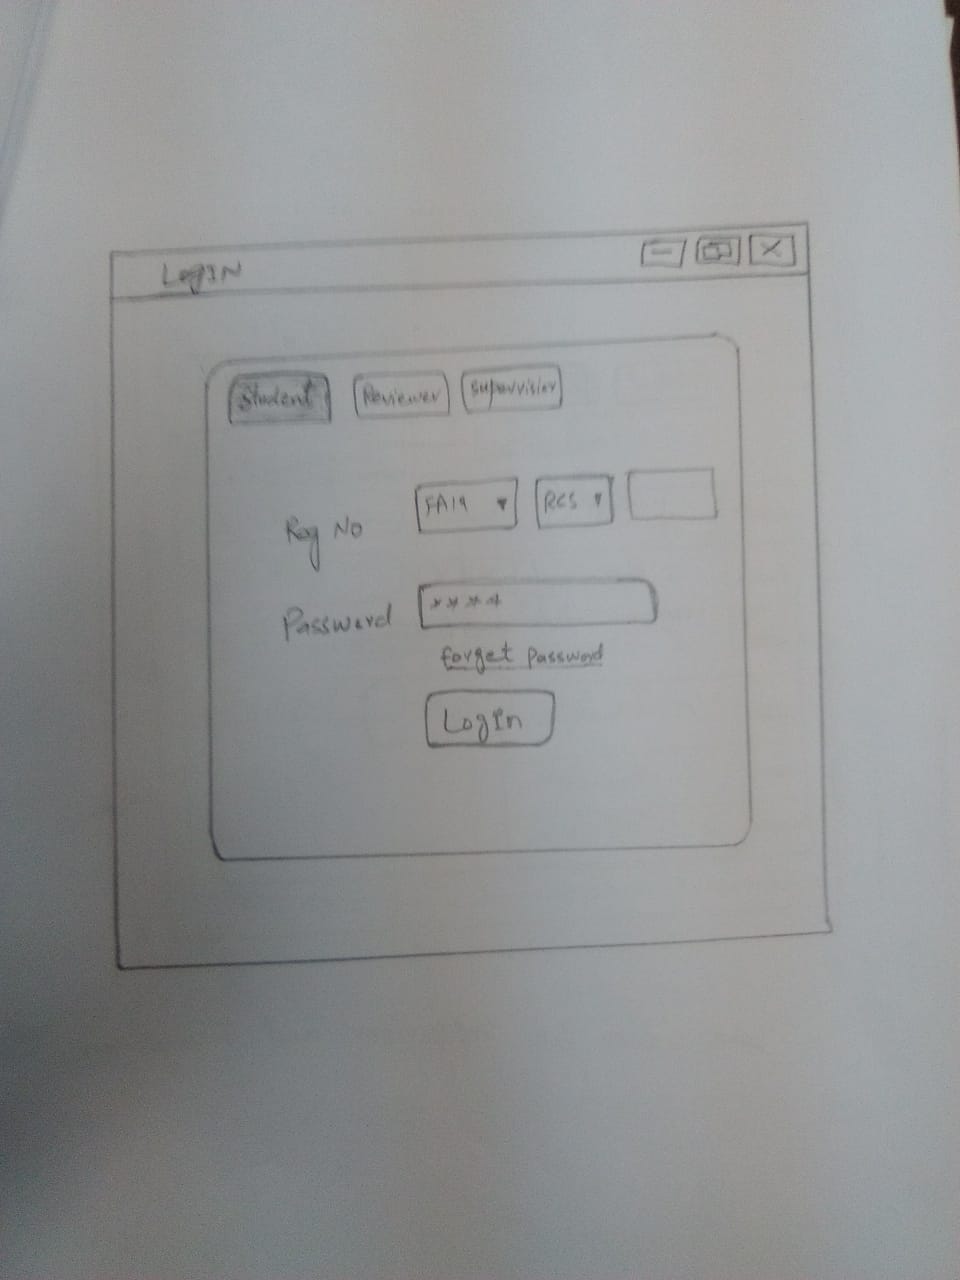 LogIN
Student Reviewer Supervisior
Reg No FA19 RCS
Password ****
forget Password
LogIn